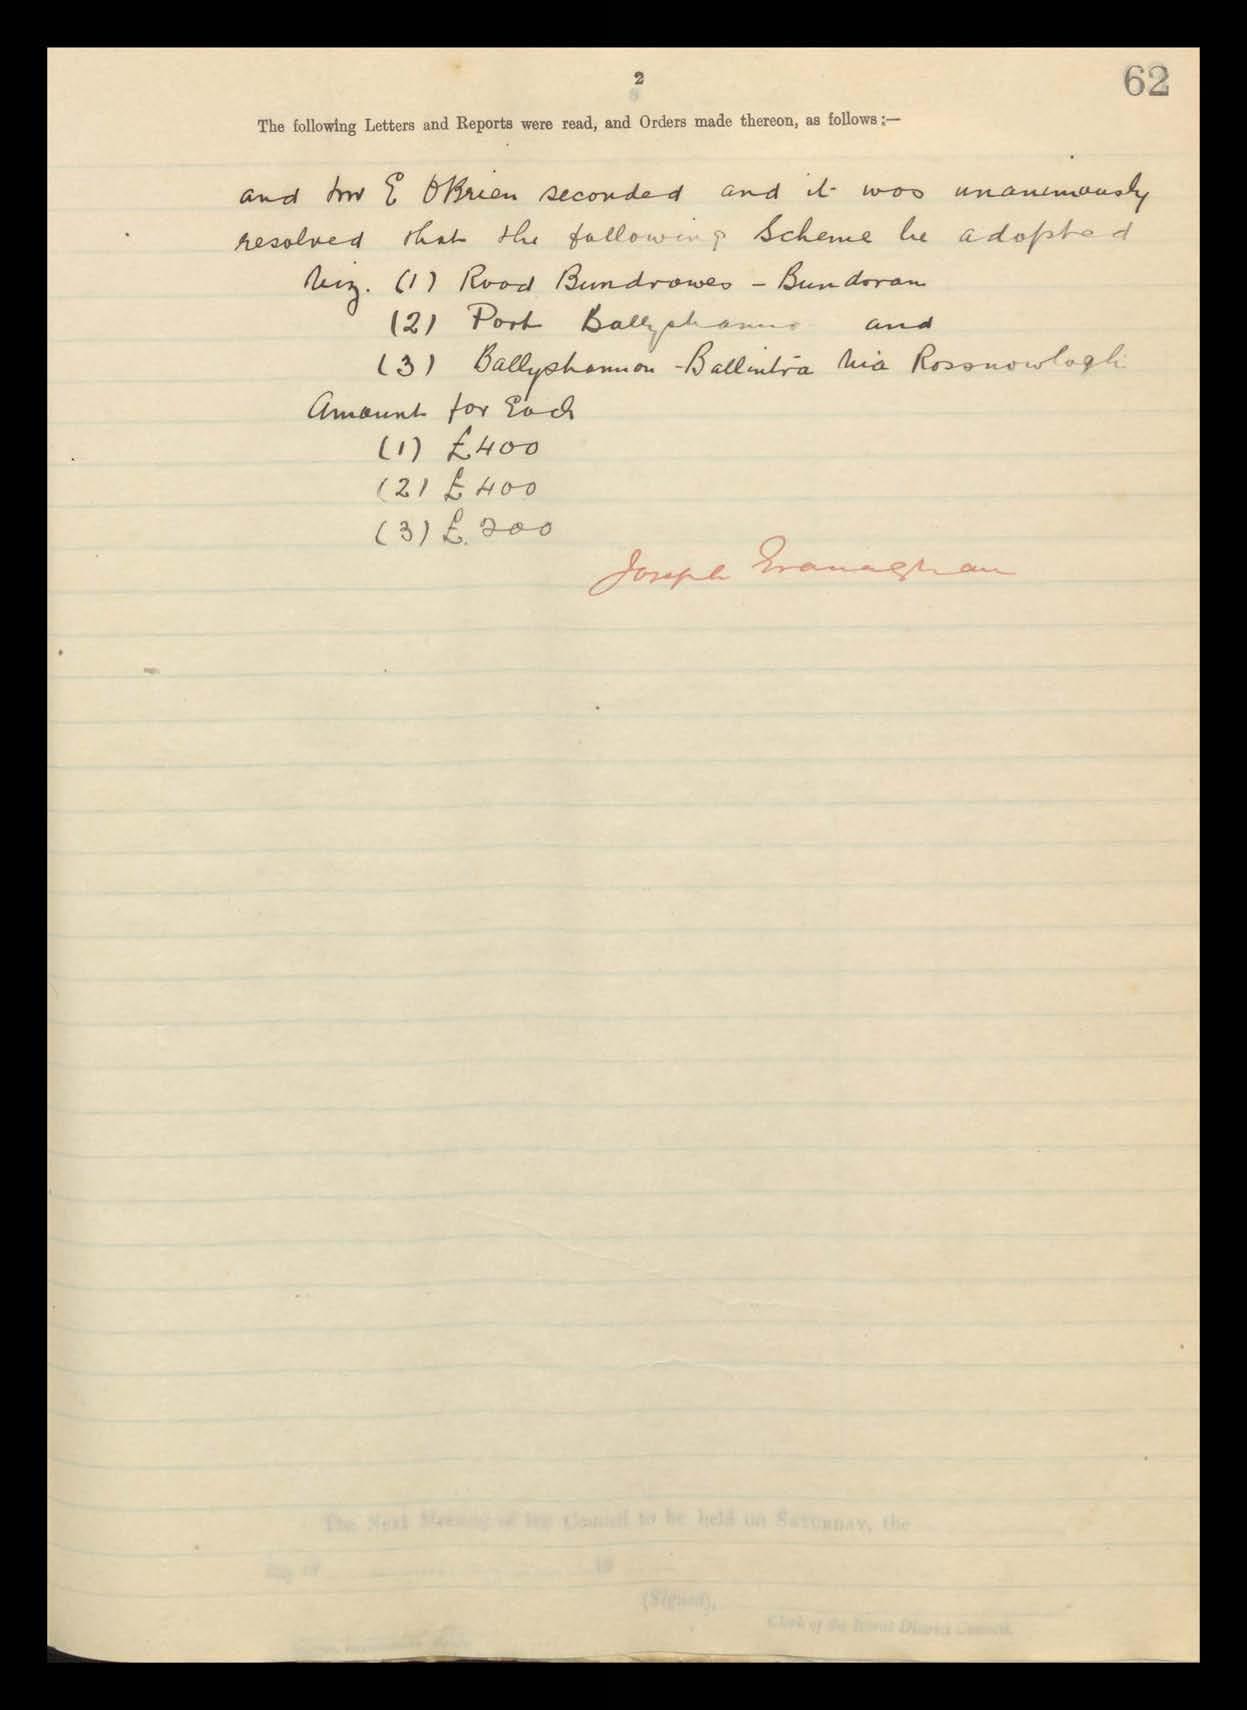 2
62
The following Letters and Reports were read, and Orders made thereon, as follows:—
and Mr E O'Brien seconded and it was unanimously
resolved that the following Scheme be adopted
Viz. (1) Road Bundrowes - Bundoran
(2) Port Ballyshannon and
(3) Ballyshannon - Ballintra via Rossnowlagh
Amount for Each
(1) £400
(2) £400
(3) £.200
Joseph Granaghan
The Next Meeting of the Council to be held on SATURDAY, the
day of 19
(Signed),
Clerk of the Rural District Council.